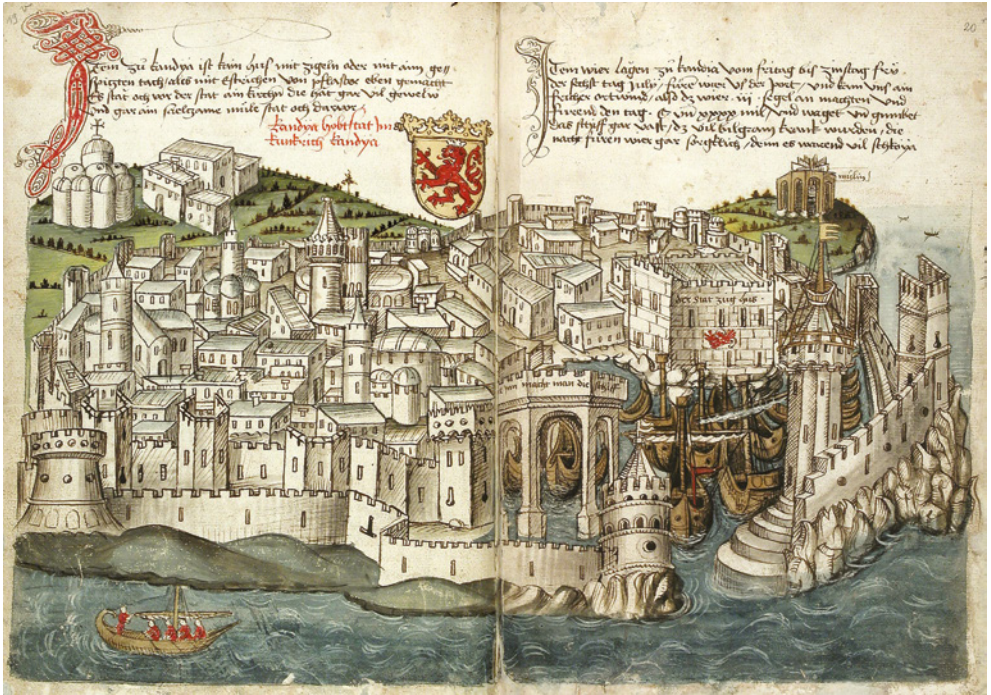 Item zů kandya ist kain hus mit zigeln oder mit aim gesp
spitzten tach / als mit Estrichen von pflaster eben gemacht
Es stat och vor der stat ain kirchn die hat gar vil gewelw
und gar ain säelzame müle stat och daran
kandya hobtstat Im
kunkrich kandya
Item wier lagen zů kandia vom fritag bis Zinstag frü
der sechst tag July / füre wier us der port / und kam uns ain
frischer ortwind / also dz wier iij segel an machten und
fürend den tag C und xxxx mil / und waget un gumbet
das schyff gar vast / dz vil bilgram krank wurden / die
nacht füren wier gar sorgklich / denn es warend vil
mülin
der stat zug hus
man macht man die schiff
19
20